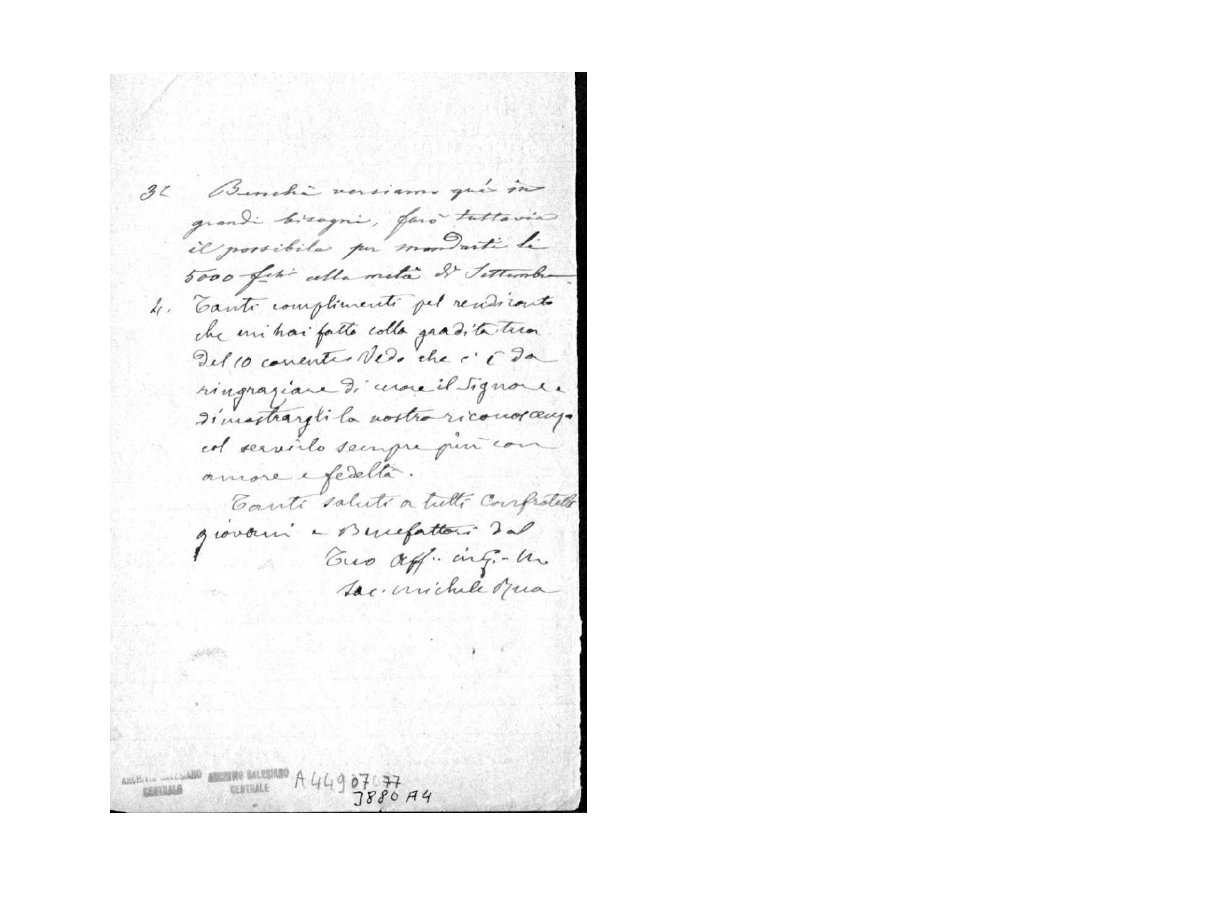 3º Benchè versiamo quì in
grandi bisogni, farò tuttavia
il possibile per mandarti li
5000 fchi alla metà di Settembre.
4. Tanti complimenti pel rendiconto
che mi hai fatto colla gradita tua
del 10 corrente. Vedo che c'è da
ringraziare di cuore il Signore e
dimostrargli la nostra riconoscenza
col servirlo sempre più con
amore e fedeltà.
Tanti saluti a tutti Confratelli
giovani e Benefattori dal
Tuo aff.. in G. M
Sac. Michele Rua
ARCHIVIO SALESIANO
CENTRALE
ARCHIVIO SALESIANO
CENTRALE
A 449 07 77
3880 A4